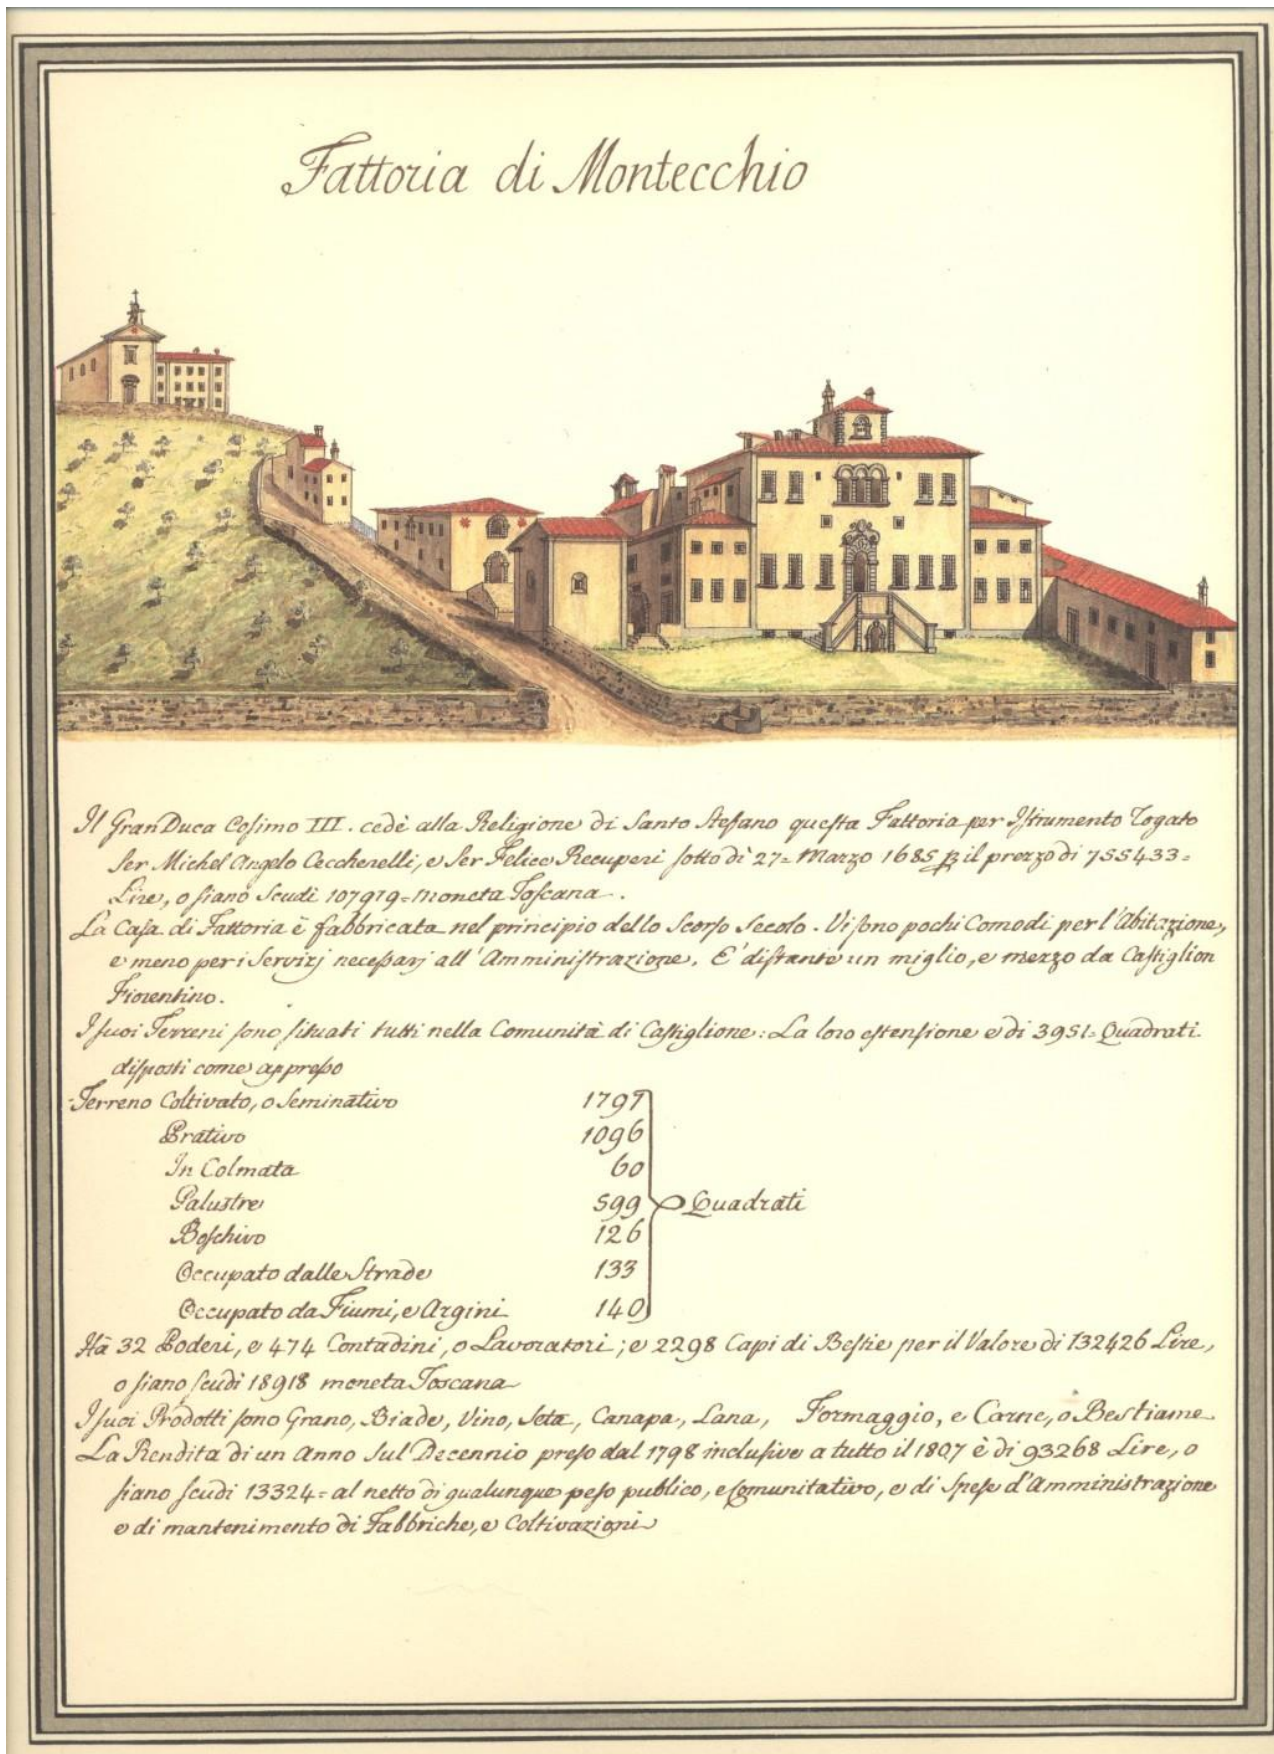 Fattoria di Montecchio
Il GranDuca Cosimo III. cedè alla Religione di Santo Stefano questa Fattoria per Istrumento Rogato
Ser Michel Angelo Ceccherelli, e Ser Felice Recuperi sotto dì 27= Marzo 1685 il prezzo di 755433=
Lire, o siano Scudi 107919= moneta Toscana.
La Casa di Fattoria è fabbricata nel principio dello Scorso Secolo. Vi sono pochi Comodi per l'Abitazione,
e meno per i Servizj necessarj all'Amministrazione. E' distante un miglio, e mezzo da Castiglion
Fiorentino.
I suoi Terreni sono situati tutti nella Comunità di Castiglione: La loro estensione e di 3951= Quadrati
disposti come appresso
Terreno Coltivato, o Seminativo 1797
Prativo 1096
In Colmata 60
Palustre 599 Quadrati
Boschivo 126
Occupato dalle Strade 133
Occupato da Fiumi, e Argini 140
Hà 32 Poderi, e 474 Contadini, o Lavoratori; e 2298 Capi di Bestie per il Valore di 132426 Lire,
o siano scudi 18918 moneta Toscana
I suoi Prodotti sono Grano, Biade, Vino, Seta, Canapa, Lana, Formaggio, e Carne, o Bestiame
La Rendita di un Anno Sul Decennio preso dal 1798 inclusive a tutto il 1807 è di 93268 Lire, o
siano scudi 13324= al netto di qualunque peso publico, e Comunitativo, e di Spese d'Amministrazione
e di mantenimento di Fabbriche, e Coltivazioni